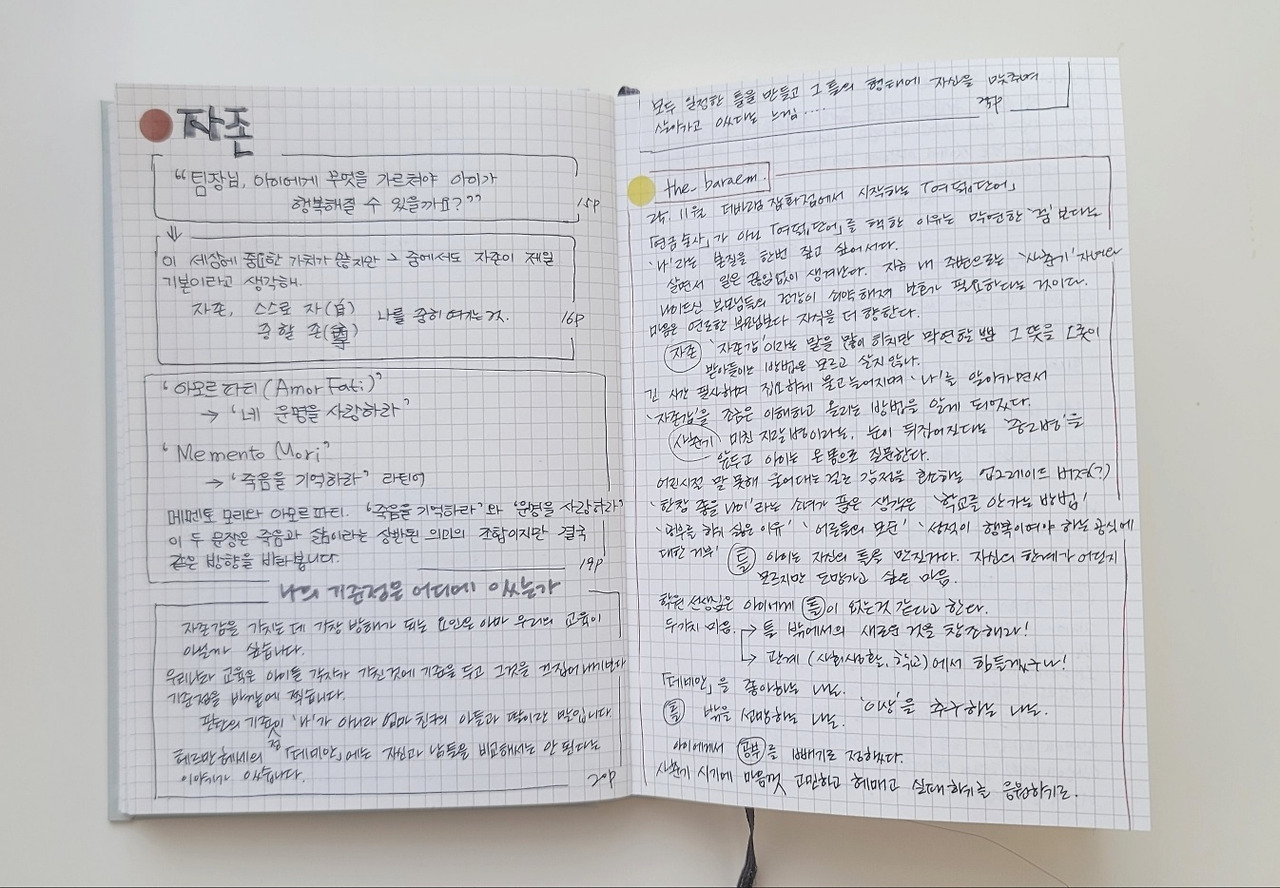 자존
“팀장님, 아이에게 무엇을 가르쳐야 아이가
행복해질 수 있을까요?” 15p
이 세상에 중요한 가치가 많지만 그 중에서도 자존이 제일
기본이라고 생각해.
자존, 스스로 자(自)
중할 존(尊) 나를 중히 여기는 것. 16p
‘아모르 파티(Amor Fati)’
→ ‘네 운명을 사랑하라’
‘Memento Mori’
→ ‘죽음을 기억하라’ 라틴어
메멘토 모리와 아모르 파티. ‘죽음을 기억하라’와 ‘운명을 사랑하라’
이 두 문장은 죽음과 삶이라는 상반된 의미의 조합이지만 결국
같은 방향을 바라봅니다. 19p
나의 기준점은 어디에 있는가
자존감을 가지는 데 가장 방해가 되는 요인은 아마 우리의 교육이
아닐까 싶습니다.
우리나라 교육은 아이들 각자가 가진 것에 기준을 두고 그것을 끄집어내기보다
기준점을 바깥에 찍습니다.
판단의 기준점이 ‘나’가 아니라 엄마 친구의 아들과 딸이란 말입니다
헤르만 헤세의 「데미안」에는 자신과 남들을 비교해서는 안 된다는
이야기가 있습니다. 20p
모두 일정한 틀을 만들고 그 틀의 형태에 자신을 맞추며
살아가고 있다는 느낌...... 25p
the_baraem.
24. 11월 더바램 잡화점에서 시작하는 「여덟단어」
「현금술사」가 아닌 「여덟단어」를 택한 이유는 막연한 ‘꿈’보다는
‘나’라는 본질을 한번 짚고 싶어서다.
살면서 일은 끊임없이 생겨난다. 지금 내 주변으로는 ‘사춘기’ 자녀와
나이드신 부모님들의 건강이 쇠약해져 변화가 필요하다는 것이다.
마음은 연로한 부모님보다 자식을 더 향한다.
자존 ‘자존감’이라는 말을 많이 하지만 막연할 뿐 그 뜻을 오롯이
받아들이는 방법은 모르고 살지 않나.
긴 시간 필사하며 집요하게 물고 늘어지며 ‘나’를 알아가면서
‘자존감’을 조금은 이해하고 올리는 방법을 알게 되었다.
사춘기 미친 지랄병이라는, 눈이 뒤집어진다는 ‘중2병’을
앞두고 아이는 온몸으로 질문한다.
어린시절 말 못해 울어대는 걸로 감정을 표하는 업그레이드 버전(?)
‘한창 좋을 나이’라는 소녀가 품은 생각은 ‘학교를 안 가는 방법’
‘공부를 하기 싫은 이유’ ‘어른들의 모순’ ‘성적이 행복이어야 하는 공식에
대한 거부’ 틀 아이는 자신의 틀을 만진거다. 자신의 한계가 어딘지
모르지만 도망가고 싶은 마음.
학원 선생님은 아이에게 틀이 없는것 같다고 한다.
두가지 마음. → 틀 밖에서의 새로운 것을 창조해라!
→ 관계 (사회생활, 학교)에서 힘들겠구나!
「데미안」을 좋아하는 나는.
틀 밖을 선망하는 나는. ‘이상’을 추구하는 나는.
아이에게서 공부를 빼기로 정했다.
사춘기 시기에 마음껏 고민하고 헤매고 실패하기를 응원하기로.